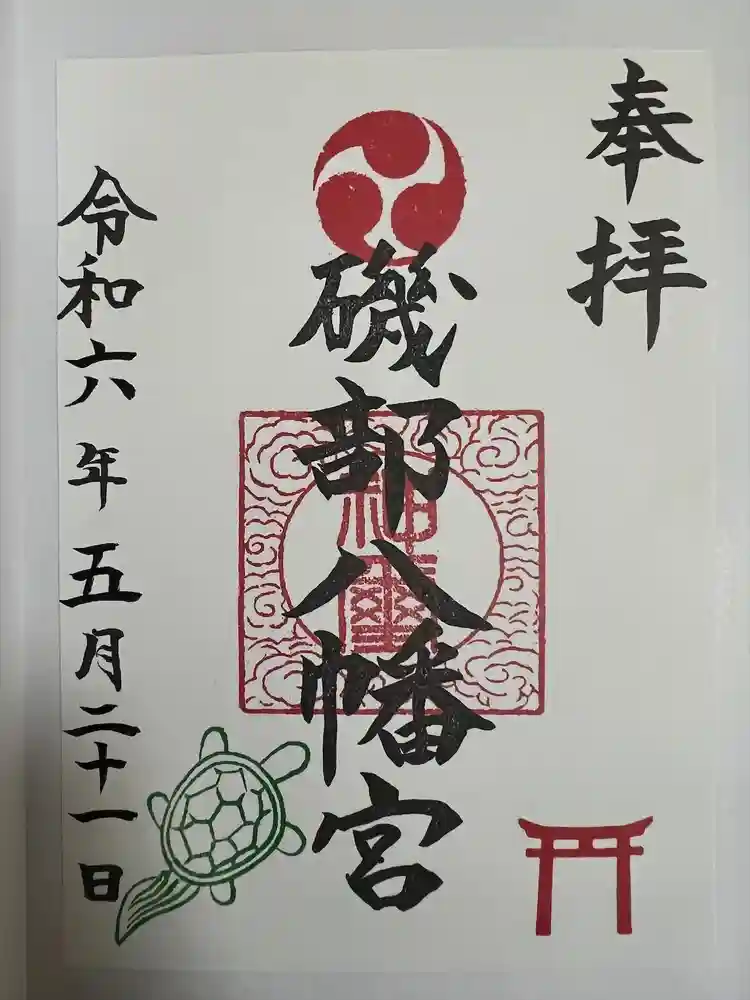 奉拝
磯部八幡宮
神璽
令和六年五月二十一日